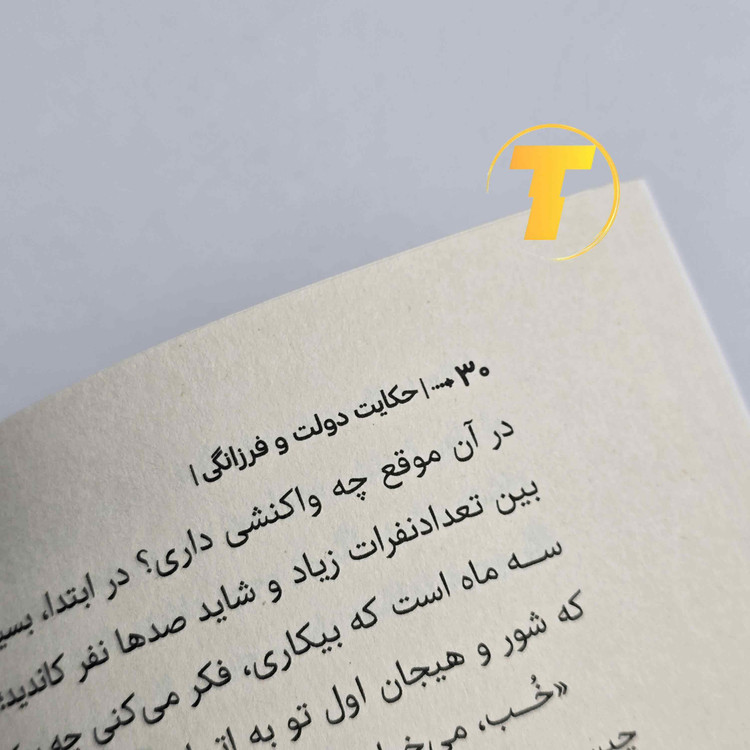 T
۳۰ | حکایت دولت و فرزانگی |
در آن موقع چه واکنشی داری؟ در ابتدا،
بین تعدادنفرات زیاد و شاید صدها نفر
سه ماه است که بیکاری، فکر می‌کنی
که شور و هیجان اول تو به
«خُب،